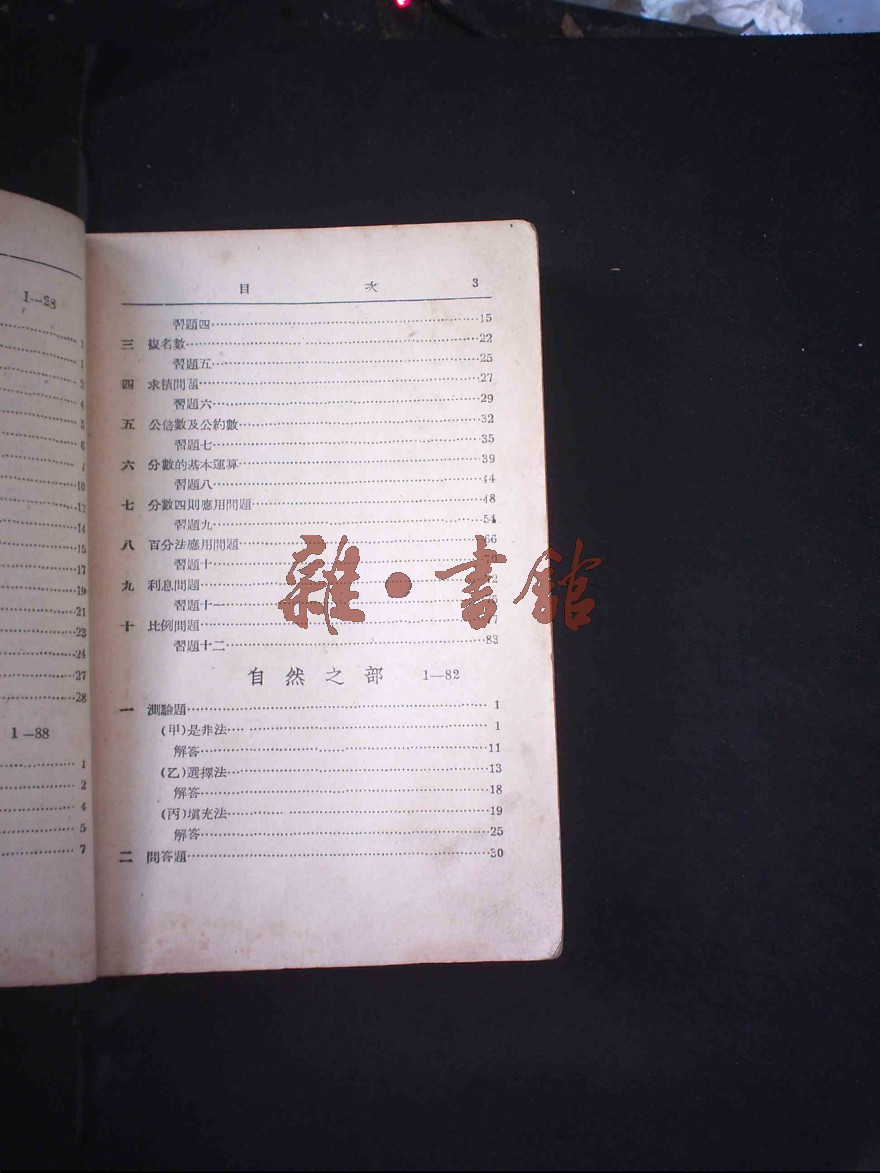 1—28
1
1
3
4
5
6
7
10
12
14
15
17
19
21
23
24
27
28
1—88
1
2
4
5
7
目 次 3
習題四……15
三 複名數……22
習題五……25
四 求積問題……27
習題六……29
五 公倍數及公約數……32
習題七……35
六 分數的基本運算……39
習題八……44
七 分數四則應用問題……48
習題九……54
八 百分法應用問題……66
習題十……
九 利息問題……
習題十一……
十 比例問題……
習題十二……83
自然之部 1—82
一 測驗題……1
(甲)是非法……1
解答……11
(乙)選擇法……13
解答……18
(丙)填充法……19
解答……25
二 問答題……30
雜·書館